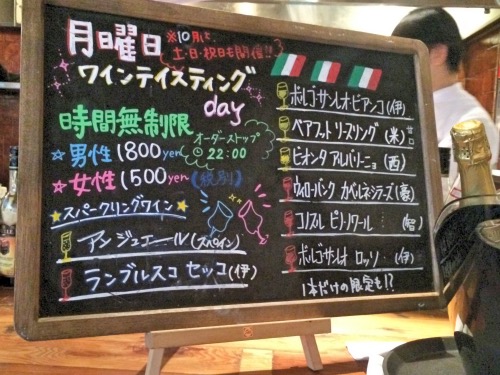 月曜日
※10月に
土・日・祝日も開催!!
ワインテイスティング
day
時間無制限
オーダーストップ
22:00
☆男性1800yen
☆女性1500yen(税別)
☆スパークリングワイン☆
アンジュエール(スペイン)
ランブルスコ セッコ(伊)
ボルゴサンレオビアンコ(伊)
ベアフットリースリング(米)甘口
ビオンタ アルバリーニョ(西)
ウィローバンク カベルネシラーズ(豪)
コノスル ピノノワール(智)
ボルゴサンレオ ロッソ(伊)
1本だけの限定も!?